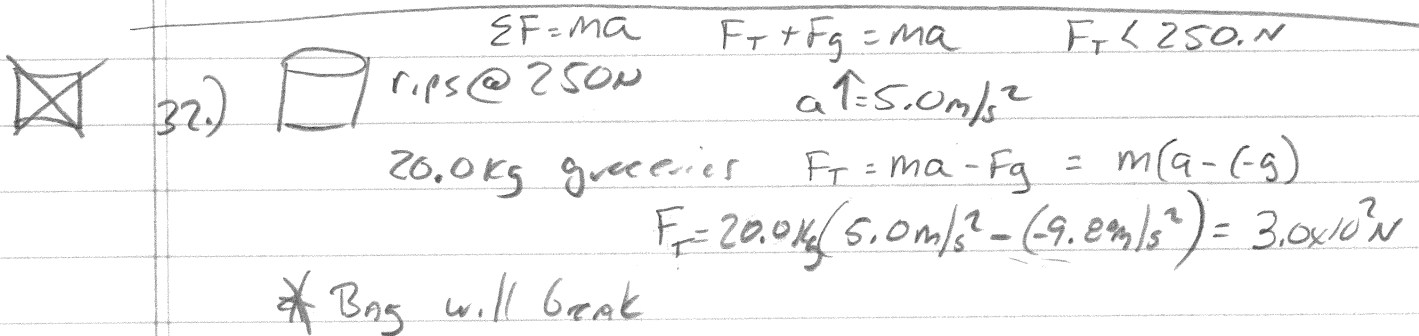 ΣF=ma F_T+Fg=ma F_T<250.N
32.) rips@250N a↑=5.0m/s²
20.0kg groceries F_T=ma-Fg = m(a-(-g)
F_T=20.0kg(5.0m/s²-(-9.8m/s²)=3.0x10²N
* Bag will break